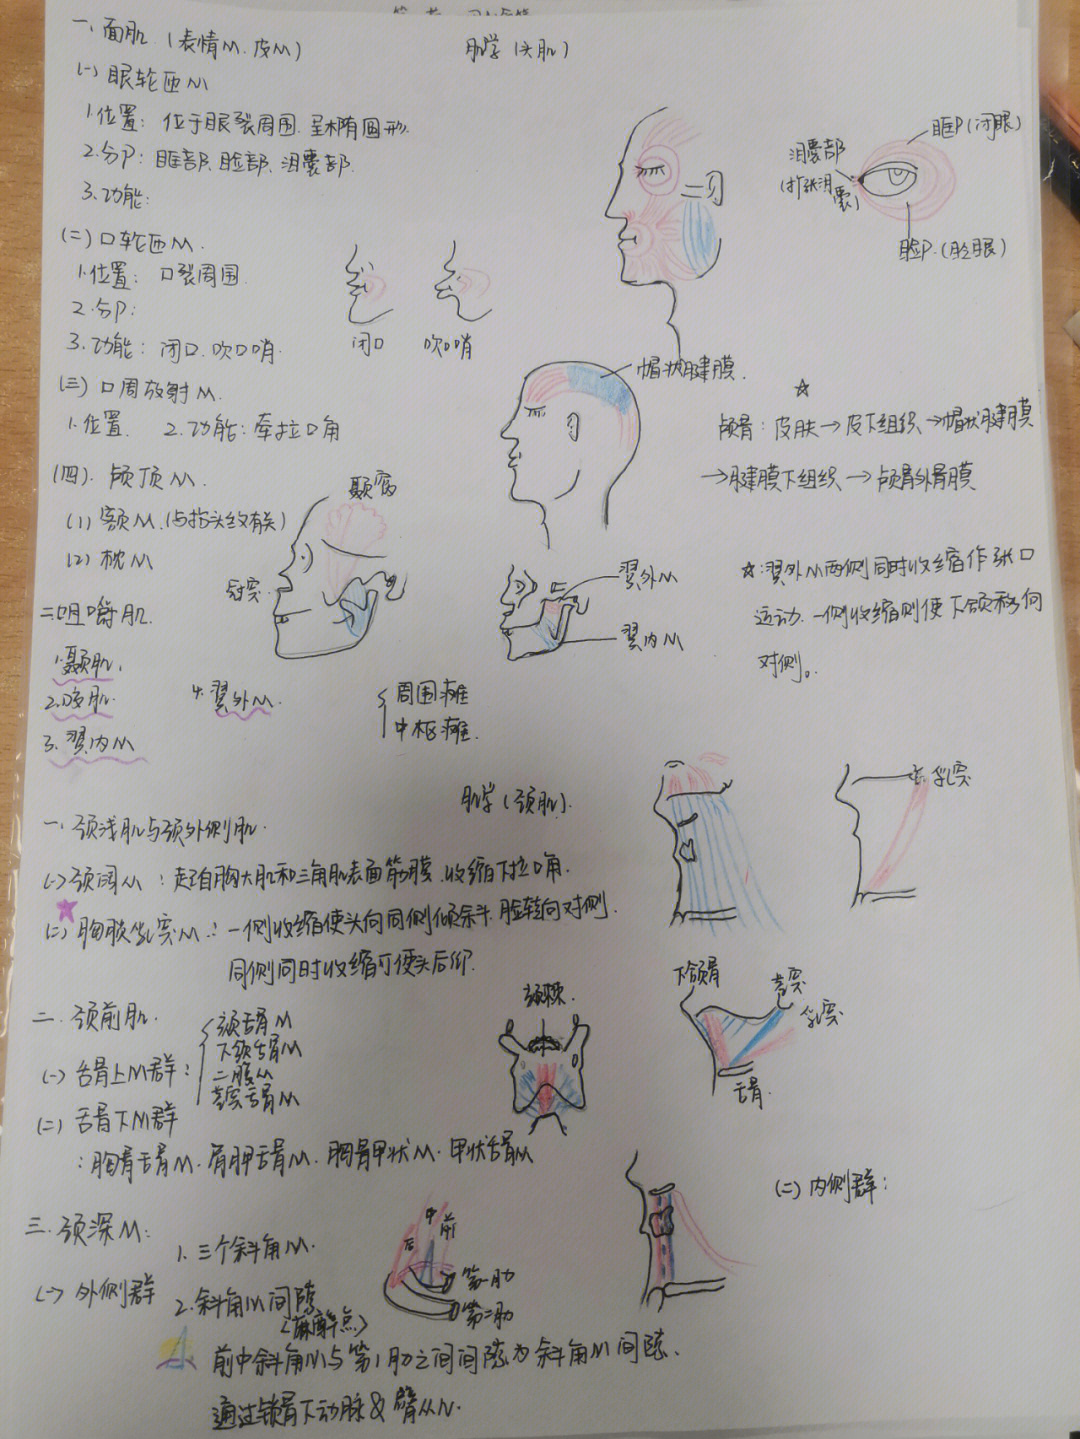 肌学(头肌)
一、面肌.(表情M.皮M)
(一)眼轮匝M
1.位置: 位于眼裂周围.呈椭圆形.
2.分P: 眶部.睑部.泪囊部.
3.功能:
眶P(闭眼)
泪囊部
(扩张泪囊)
睑P.(眨眼)
(二)口轮匝M.
1.位置: 口裂周围.
2.分P:
3.功能: 闭口.吹口哨.
闭口
吹口哨
(三)口周放射M.
1.位置. 2.功能: 牵拉口角
帽状腱膜.
☆
颅骨: 皮肤→皮下组织→帽状腱膜
→腱膜下组织→颅骨外骨膜
(四).颅顶M.
(1)额M.(与抬头纹有关)
(2)枕M
颞窝
冠突.
翼外M
翼内M
☆:翼外M两侧同时收缩作张口
运动.一侧收缩则使下颌移向
对侧。
二.咀嚼肌.
1.颞肌.
2.咬肌.
3.翼内M
4.翼外M.
周围瘫
中枢瘫.
肌学(颈肌).
一.颈浅肌与颈外侧肌.
(一)颈阔M: 起自胸大肌和三角肌表面筋膜.收缩下拉口角.
☆
(二)胸锁乳突M.: 一侧收缩使头向同侧倾斜.脸转向对侧.
同侧同时收缩可使头后仰.
乳突
二.颈前肌.
(一)舌骨上M群:
颏舌骨M
下颌舌骨M
二腹M
茎突舌骨M
颏棘.
下颌骨
茎突
乳突
舌骨.
(二)舌骨下M群
:胸骨舌骨M.肩胛舌骨M.胸骨甲状M.甲状舌骨M
三.颈深M:
(一)外侧群
1.三个斜角M.
2.斜角M间隙
(麻醉点)
后
中
前
第一肋
第二肋
(二)内侧群:
前中斜角M与第1肋之间间隙为斜角M间隙.
通过锁骨下动脉&臂丛N.